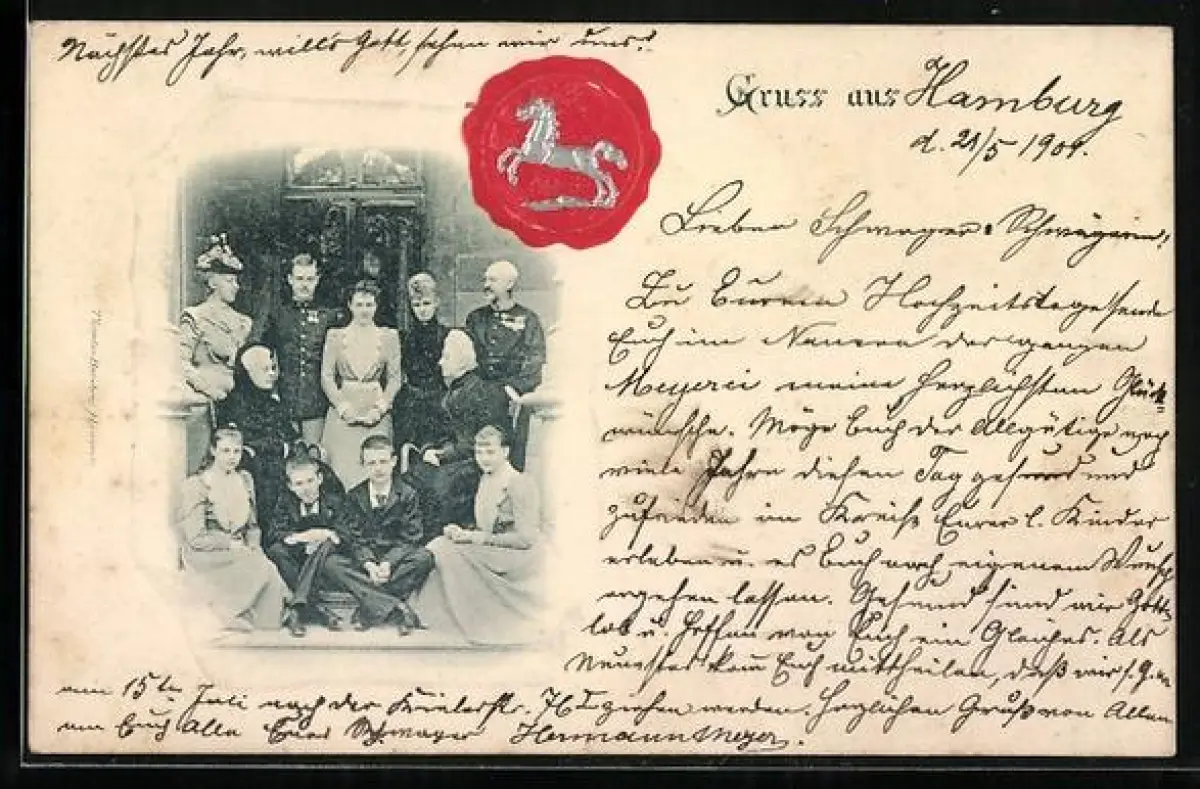 Nächstes Jahr, will's Gott, sehen wir uns!
Gruss aus Hamburg
d. 21/5 1901.
Lieber Schwager u. Schwägerin,
Zu Eurem Hochzeitstage sende
Euch im Namen der ganzen
Meyerei meine herzlichsten Glück-
wünsche. Möge Euch der Allgütige noch
viele Jahre diesen Tag gesund und
zufrieden im Kreise Eurer l. Kinder
erleben u. es Euch nach eigenem Wunsch
ergehen lassen. Gesund sind wir Gott-
lob u. hoffen von Euch ein Gleiches. Als
Neuestes kann Euch mittheilen, daß wir s. G. w.
am 15ten Juli nach der Kielerstr. 76 I ziehen werden. Herzlichen Gruß von Allen
an Euch Alle Euer Schwager Hermann Meyer.